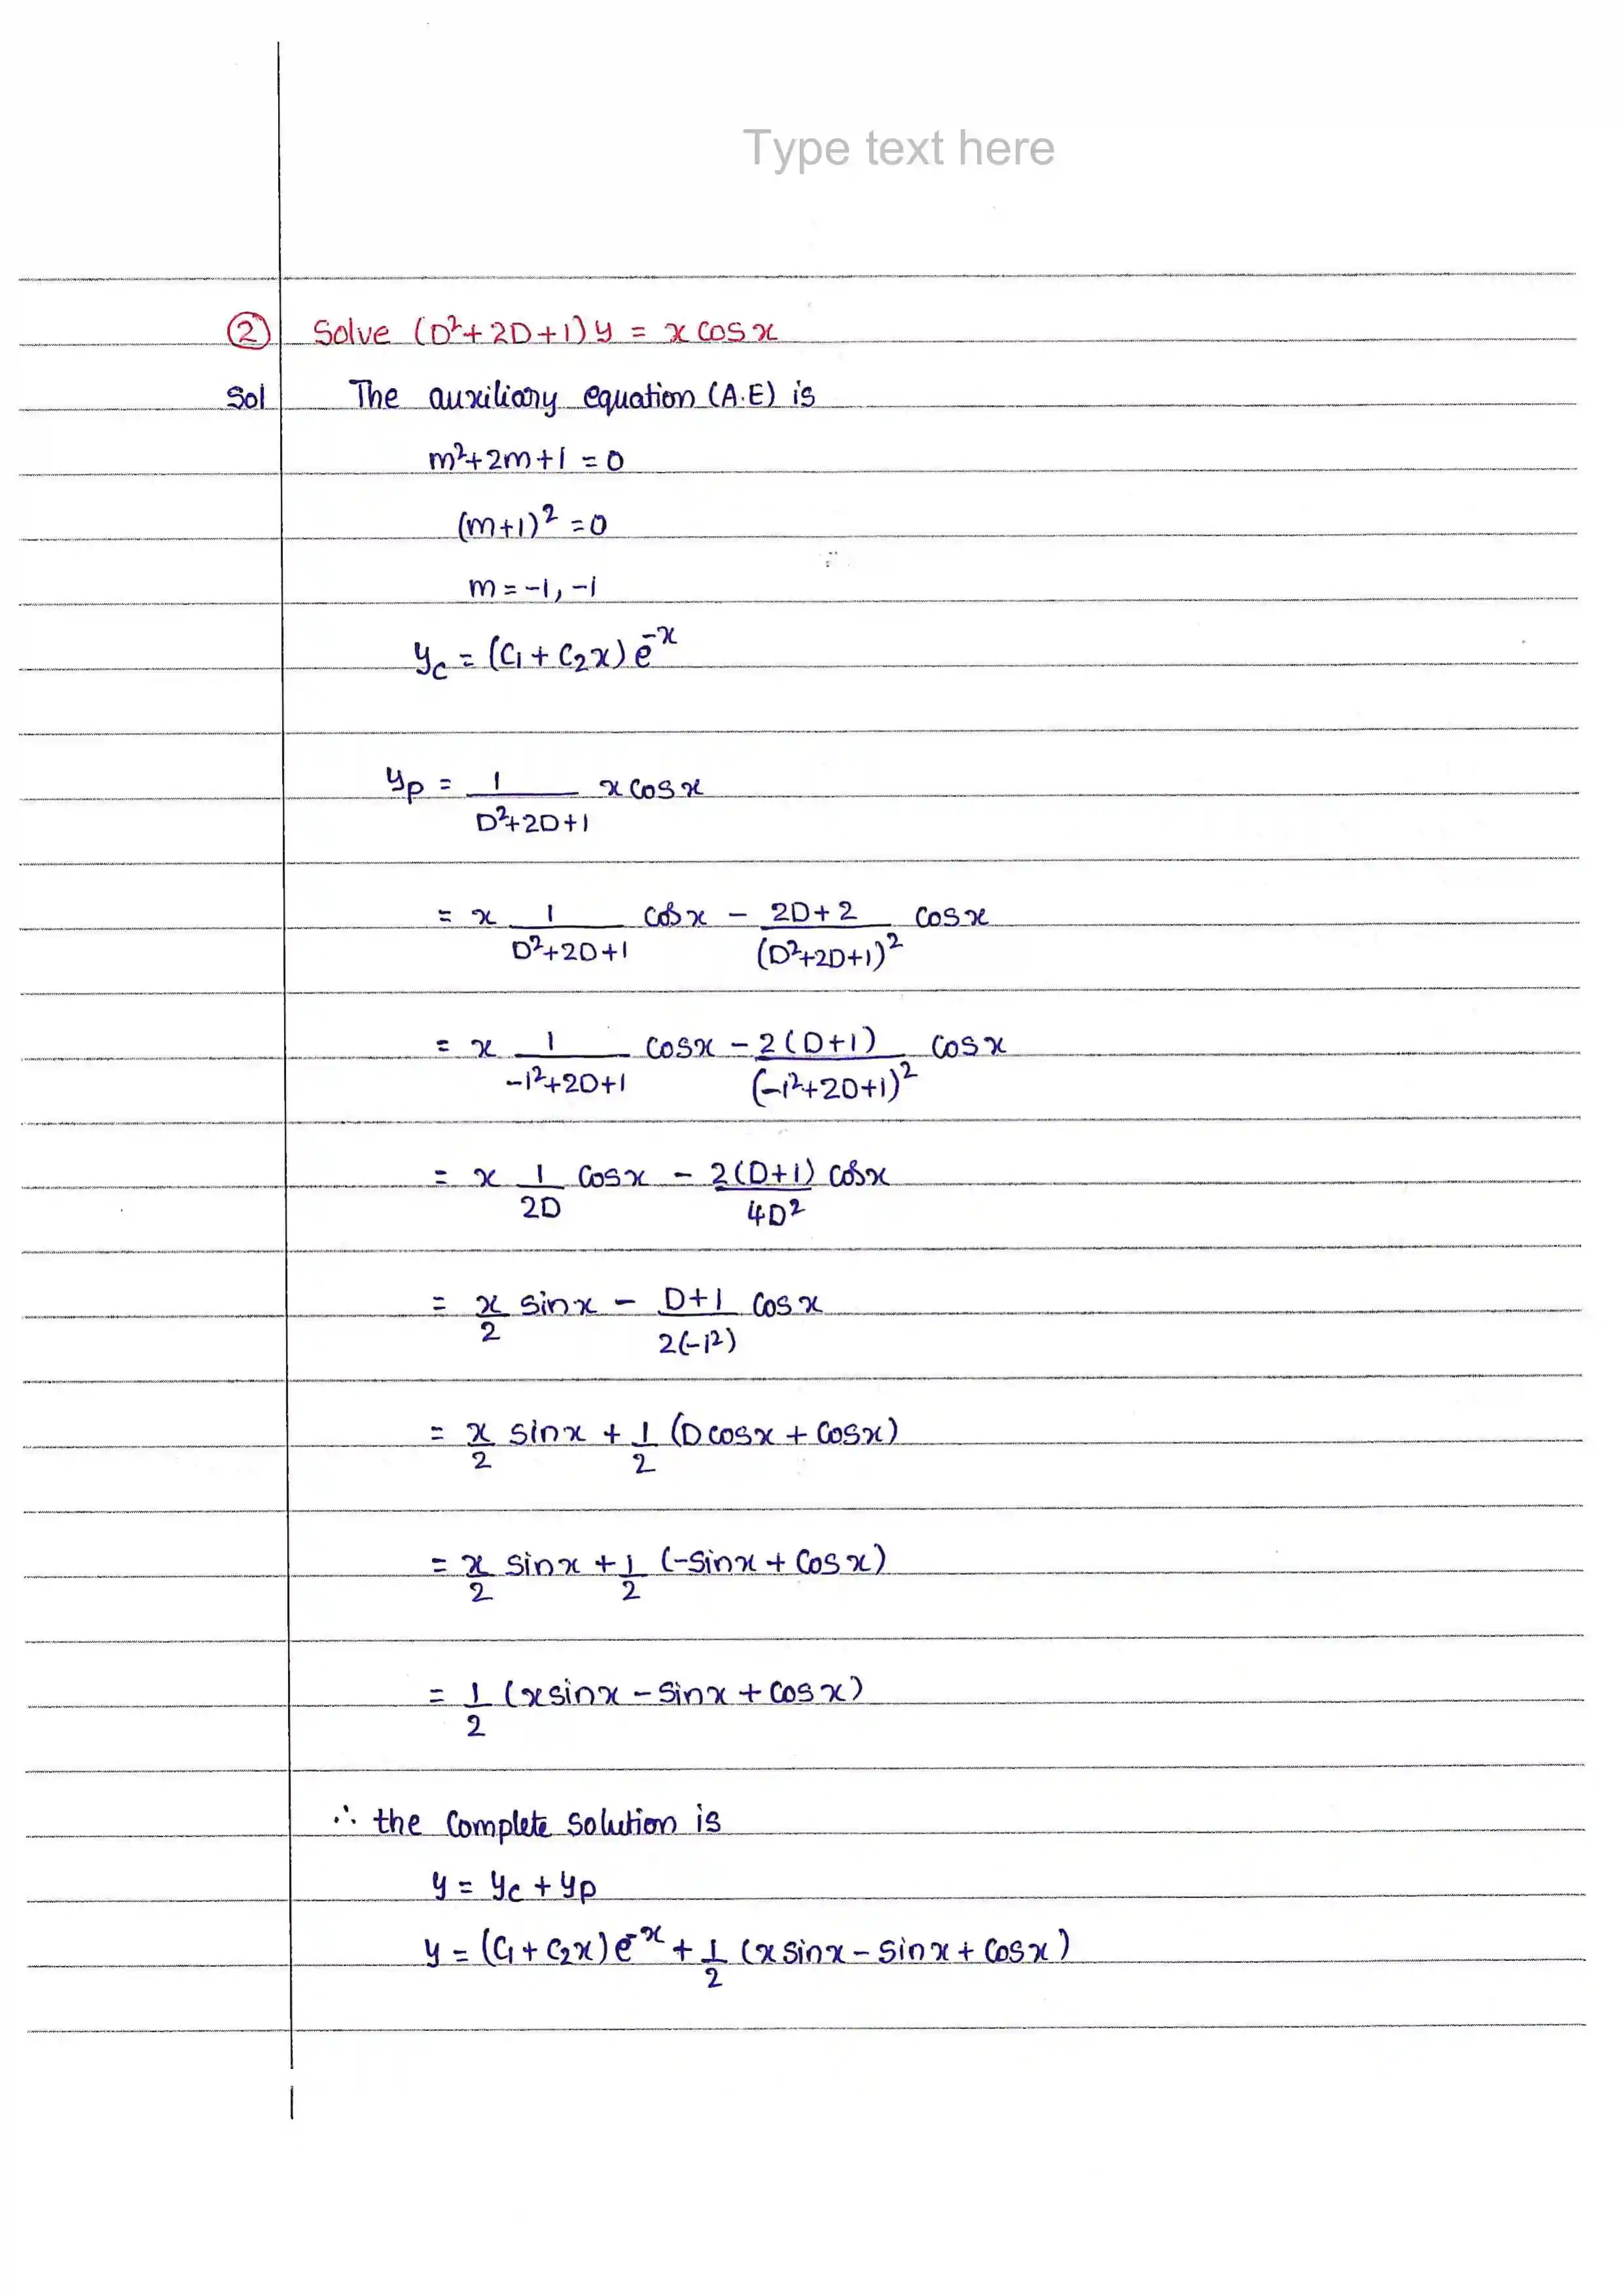 Type text here
② Solve (D²+2D+1)y = x cosx
Sol The auxiliary equation (A.E) is
m²+2m+1 = 0
(m+1)² = 0
m = -1, -1
y_c = (C₁ + C₂x) e^-x
y_p = 1/(D²+2D+1) x cosx
= x 1/(D²+2D+1) cosx - (2D+2)/(D²+2D+1)² cosx
= x 1/(-1²+2D+1) cosx - 2(D+1)/(-1²+2D+1)² cosx
= x 1/2D cosx - 2(D+1)/4D² cosx
= x/2 sinx - (D+1)/2(-1²) cosx
= x/2 sinx + 1/2 (D cosx + cosx)
= x/2 sinx + 1/2 (-sinx + cosx)
= 1/2 (x sinx - sinx + cosx)
∴ the complete solution is
y = y_c + y_p
y = (C₁ + C₂x) e^-x + 1/2 (x sinx - sinx + cosx)